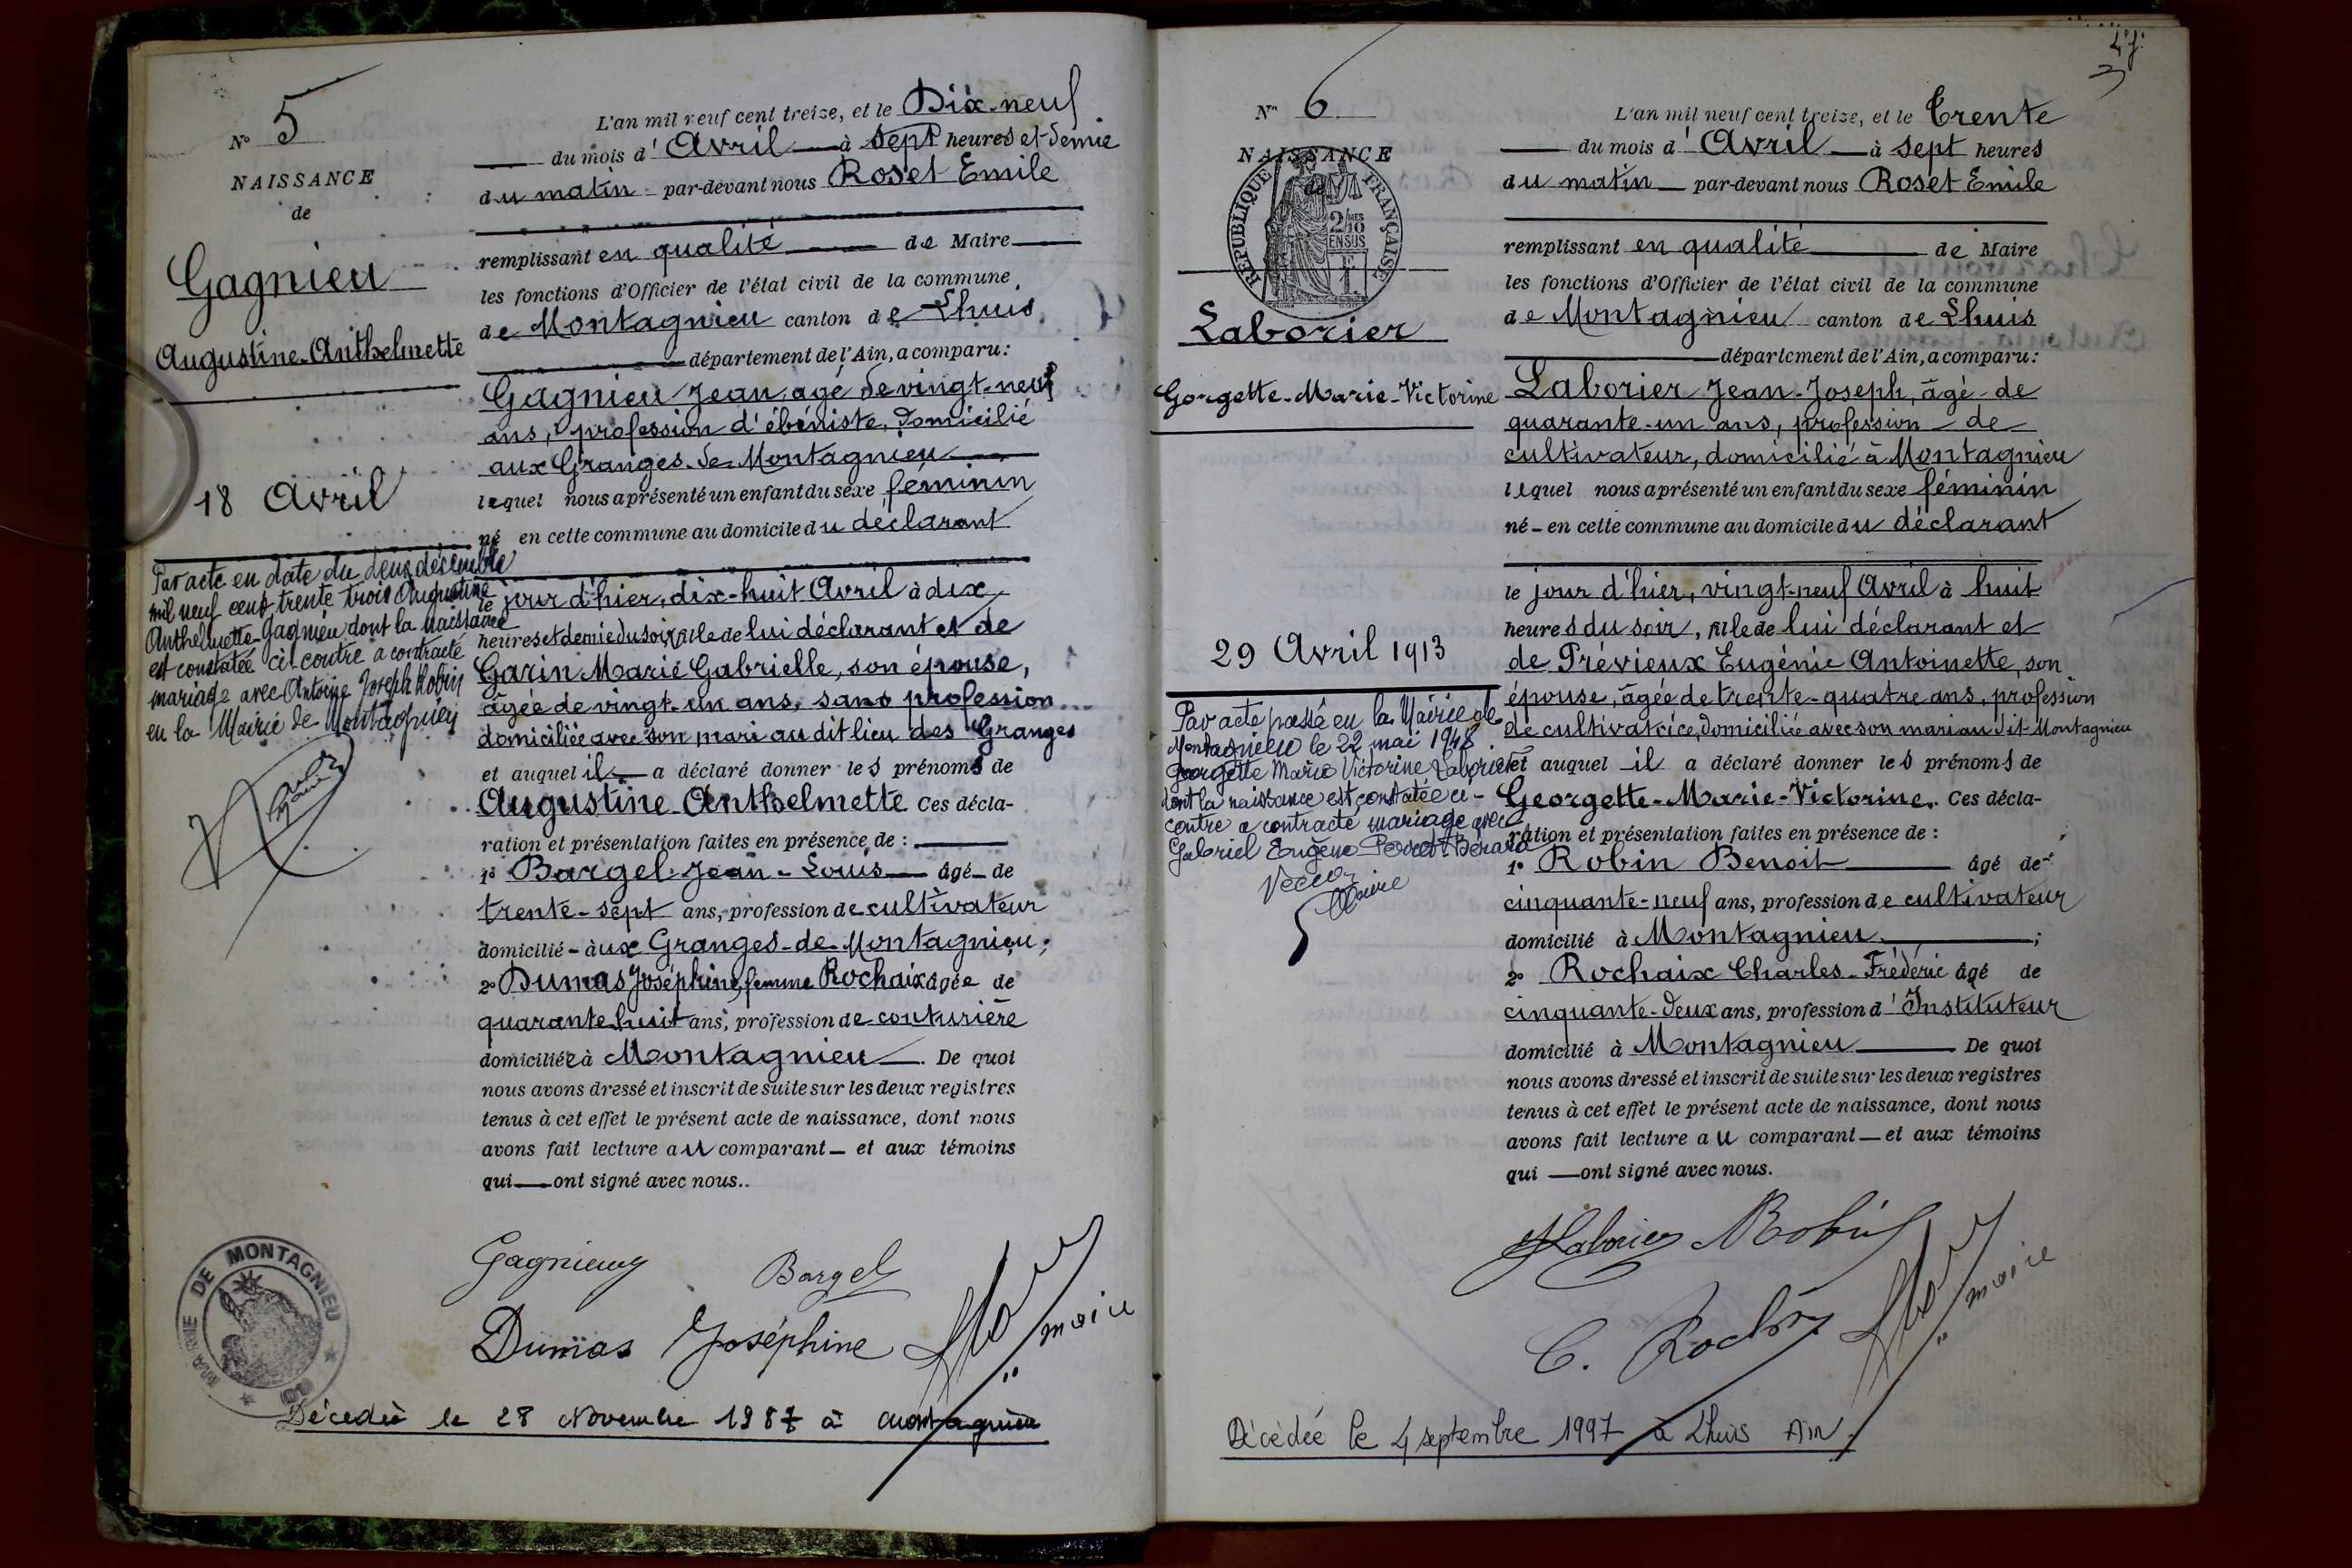 N° 5
NAISSANCE
de
Gagnieu
Augustine-Anthelmette
18 Avril
Par acte en date du deux décembre
mil neuf cent trente trois Augustine
Anthelmette Gagnieu dont la naissance
est constatée ci-contre a contracté
mariage avec Antoine Joseph Robin
en la Mairie de Montagnieu
L'an mil neuf cent treize, et le Dix-neuf
du mois d'Avril à sept heures et demie
du matin par-devant nous Roset Emile
remplissant en qualité de Maire
les fonctions d'Officier de l'état civil de la commune
de Montagnieu canton de Lhuis
département de l'Ain, a comparu :
Gagnieu Jean, agé de vingt-neuf
ans, profession d'ébéniste, domicilié
aux Granges-de-Montagnieu
lequel nous a présenté un enfant du sexe féminin
né en cette commune au domicile du déclarant
le jour d'hier, dix-huit Avril à dix
heures et demie du soir, fille de lui déclarant et de
Garin Marie Gabrielle, son épouse,
âgée de vingt-un ans, sans profession
domiciliée avec son mari au dit lieu des Granges
et auquel il a déclaré donner les prénoms de
Augustine-Anthelmette Ces décla-
ration et présentation faites en présence de :
1° Bargel Jean-Louis âgé de
trente-sept ans, profession de cultivateur
domicilié aux Granges-de-Montagnieu ;
2° Dumas Joséphine, femme Rochaix âgée de
quarante huit ans, profession de couturière
domiciliée à Montagnieu. De quoi
nous avons dressé et inscrit de suite sur les deux registres
tenus à cet effet le présent acte de naissance, dont nous
avons fait lecture au comparant et aux témoins
qui ont signé avec nous..
Gagnieu Bargel
Dumas Joséphine maire
MAIRIE DE MONTAGNIEU
Décédée le 28 Novembre 1987 à Montagnieu
N° 6
NAISSANCE
de
RÉPUBLIQUE FRANÇAISE
2/10 MES
EN SUS
Laborier
Gorgette-Marie-Victorine
29 Avril 1913
Par acte passé en la Mairie de
Montagnieu le 22 mai 1948
Georgette Marie Victorine Laborier
dont la naissance est constatée ci-
contre a contracté mariage avec
Gabriel Eugène Perret Bérard
Maire
L'an mil neuf cent treize, et le Trente
du mois d'Avril à sept heures
du matin par-devant nous Roset Emile
remplissant en qualité de Maire
les fonctions d'Officier de l'état civil de la commune
de Montagnieu canton de Lhuis
département de l'Ain, a comparu :
Laborier Jean-Joseph, âgé de
quarante-un ans, profession de
cultivateur, domicilié à Montagnieu
lequel nous a présenté un enfant du sexe féminin
né en cette commune au domicile du déclarant
le jour d'hier, vingt-neuf Avril à huit
heures du soir, fille de lui déclarant et
de Prévieux Eugénie Antoinette, son
épouse, âgée de trente-quatre ans, profession
de cultivatrice, domiciliée avec son mari au dit Montagnieu
et auquel il a déclaré donner les prénoms de
Georgette-Marie-Victorine. Ces décla-
ration et présentation faites en présence de :
1° Robin Benoit âgé de
cinquante-neuf ans, profession de cultivateur
domicilié à Montagnieu ;
2° Rochaix Charles-Frédéric âgé de
cinquante-deux ans, profession d'Instituteur
domicilié à Montagnieu De quoi
nous avons dressé et inscrit de suite sur les deux registres
tenus à cet effet le présent acte de naissance, dont nous
avons fait lecture au comparant et aux témoins
qui ont signé avec nous.
Laborier Robin
C. Rochaix maire
Décédée le 4 septembre 1997 à Lhuis Ain